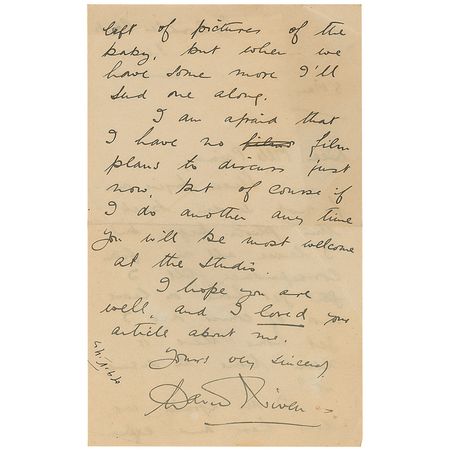 left of pictures of the
baby, but when we
have some more I'll
send one along.
I am afraid that
I have no films film
plans to discuss just
now, but of course if
I do another any time
you will be most welcome
at the studio.
I hope you are
well, and I loved your
article about me.
Yours very sincerely
David Niven